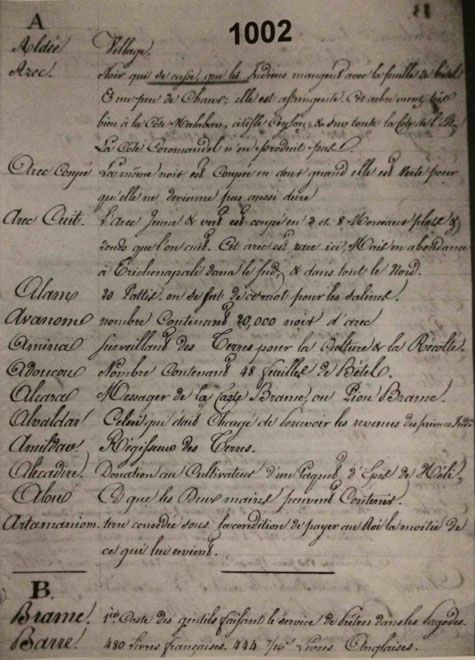 1002
A
Aldée Village.
Arec. Noix qui se casse, que les Indiens mangent avec la feuille de bétel
& un peu de Chaux; elle est astringente. Cet arbre vient très
bien à la Côte Malabar, à l'isle Ceylan, & dans toute la
La Côte Coromandel n'en produit pas.
Arec Coupé La même noix est Coupée en dout quand elle est verte pour
qu'elle ne devienne pas aussi dure
Arec Cuit. L'arec Jeune & vert est coupé en 2 et 8 Morceaux plats &
ronds que l'on cuit. Cet arec est rare ici, Mais en abondance
à Trichenapali dans le Sud, & dans tout le Nord.
Alam 20 Pattis. on se sert de ce mot pour les salines.
Avanom nombre Contenant 20,000 noix d'arec
Amina Surveillant des Terres pour la Culture & la Récolte.
Adoucou Nombre Contenant 48 feuilles de Bétel.
Alcara Messager de la Caste Brame, ou Pion Brame.
Alvaldar Celui qui était Chargé de recevoir les revenus des princes
Amildar Régisseur des Terres.
Alecadive. Donation au Cultivateur d'un Paquet d'Epis de Nély.
Ce que les Deux mains peuvent Contenir.
Artamaniom. terre concédée sous la condition de payer au Roi la moitié de
ce qui lui revient.
B.
Brame. 1ere Caste des gentils faisant le service de Prêtres dans les Pagodes.
Barre. 480 Livres françaises. 444 7/16 Livres Anglaises.